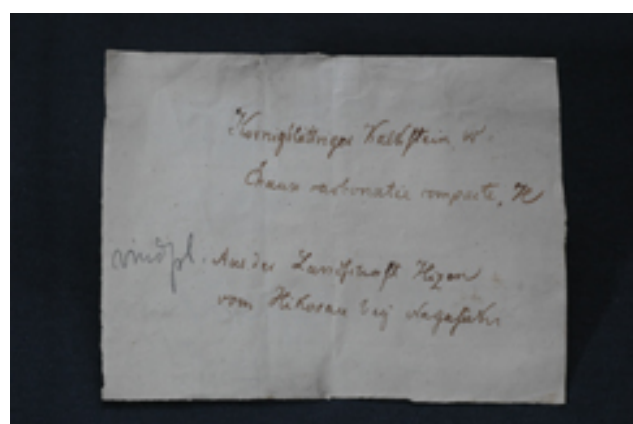 Koernigblättriger Kalkstein, W.
Chaux carbonatée compacte, H
vindpl. Aus der Landschaft Hizen
vom Hikosan beij Nagasaki